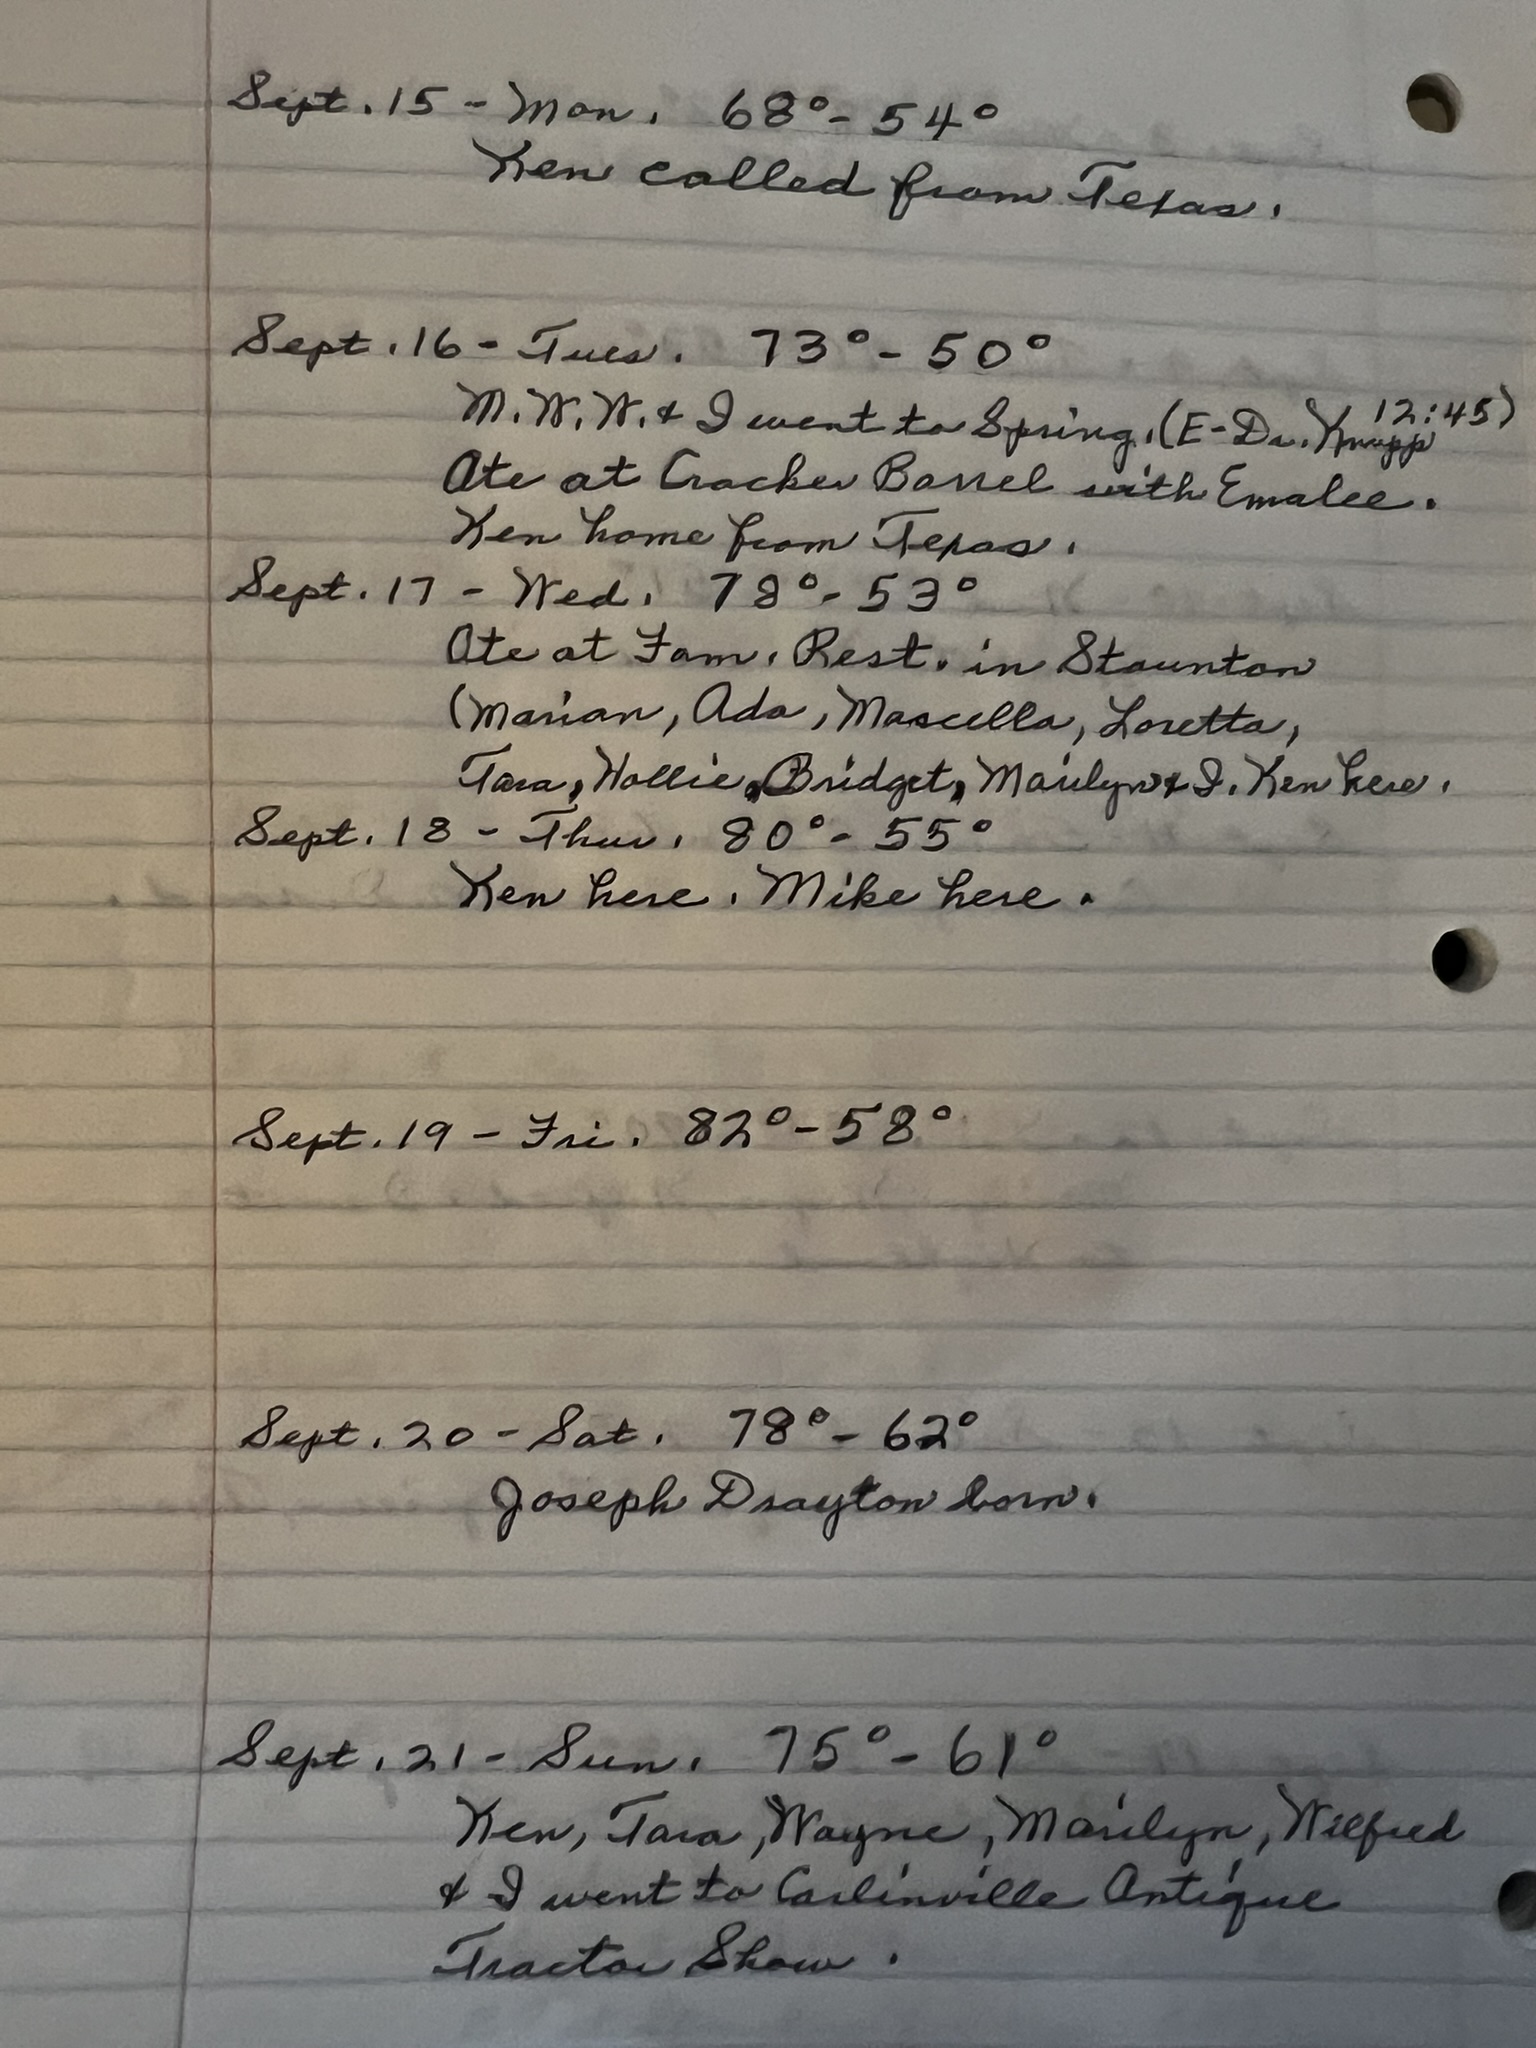 Sept. 15 - Mon. 68° - 54°
Ken called from Texas.
Sept. 16 - Tues. 73° - 50°
M. W. W. & I went to Spring. (E - Dr. Knapp 12:45)
Ate at Cracker Barrel with Emalee.
Ken home from Texas.
Sept. 17 - Wed. 78° - 53°
Ate at Fam. Rest. in Staunton
(Marian, Ada, Mascella, Loretta,
Tara, Hollie, Bridget, Marilyn & I. Ken here.
Sept. 18 - Thur. 80° - 55°
Ken here. Mike here.
Sept. 19 - Fri. 82° - 58°
Sept. 20 - Sat. 78° - 62°
Joseph Drayton born.
Sept. 21 - Sun. 75° - 61°
Ken, Tara, Wayne, Marilyn, Wilfred
& I went to Carlinville Antique
Tractor Show.